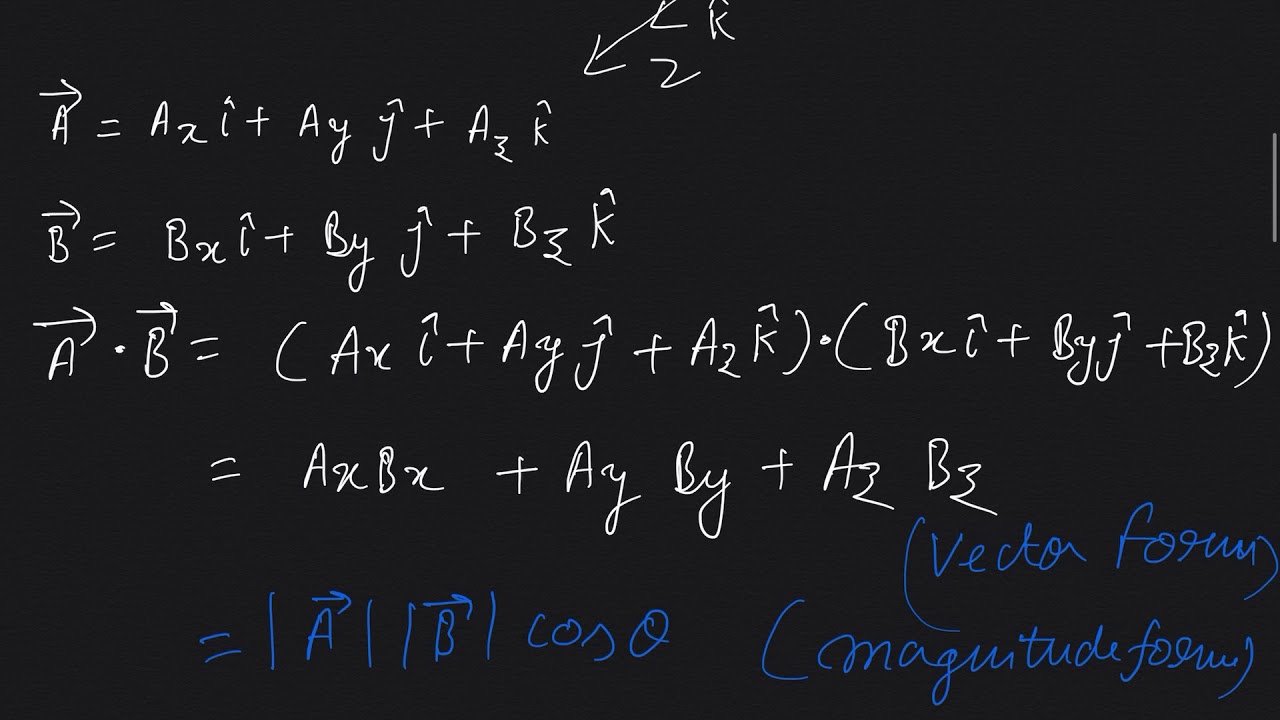 k̂
z
A⃗ = Ax î + Ay ĵ + Az k̂
B⃗ = Bx î + By ĵ + Bz k̂
A⃗ · B⃗ = (Ax î + Ay ĵ + Az k̂) · (Bx î + By ĵ + Bz k̂)
= AxBx + Ay By + Az Bz
(Vector form)
= |A⃗| |B⃗| cosθ (magnitude form)